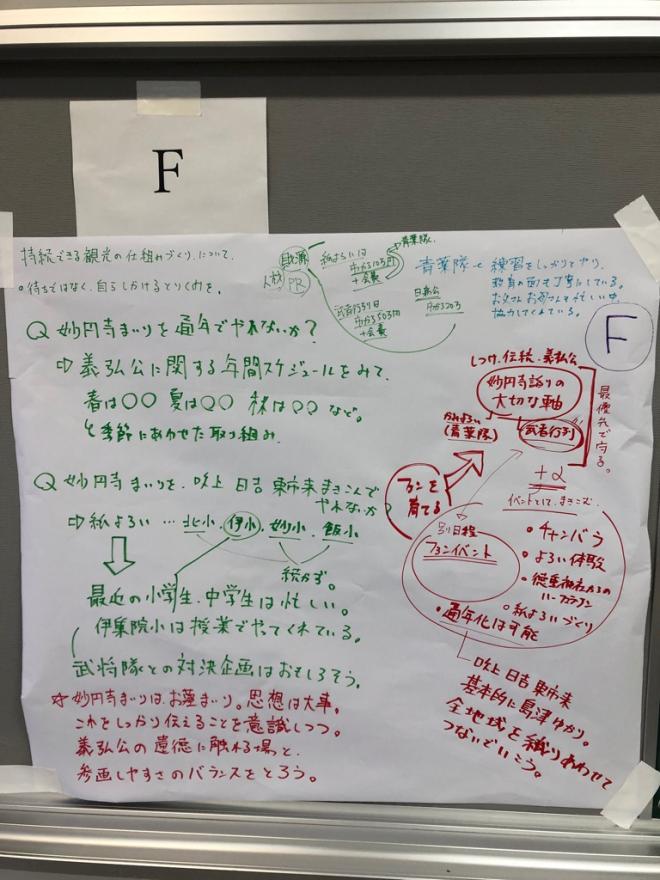 F
持続できる観光の仕組みづくりについて
・待ちではなく、自らしかけるとりくみを。
財源
人材
PR
紙よろいは
市から10万円
+会費
青葉隊
武者行列は
市から50万円
+会費
青葉隊は練習をしっかりとやり、
お父さんお母さんも忙しい中
協力してくれている。
F
Q 妙円寺まいりを通年でやれないか?
⇨ 義弘公に関する年間スケジュールをみて、
春は〇〇 夏は〇〇 秋は〇〇 など。
と季節にあわせた取り組み
Q 妙円寺まいりを、吹上 日吉 東市来まきこんで
やれないか?
⇨ 紙よろい … 北小、伊小、妙小、飯小
続かず。
最近の小学生、中学生は忙しい。
伊集院小は授業でやってくれている。
武将隊との対決企画はおもしろそう。
☆ 妙円寺まいりは、お墓まいり。思想は大事。
これをしっかり伝えることを意識しつつ。
義弘公の遺徳に触れる場と、
参画しやすさのバランスをとろう。
しつけ、伝統、義弘公
妙円寺詣りの
大切な軸
(青葉隊)
武者行列
最優先で守る。
+α
イベントとして、まきこむ、
ファンを
育てる
別日程
ファンイベント
・チャンバラ
・よろい体験
・徳重神社からの
・紙よろいづくり
・通年化は可能
吹上 日吉 東市来
基本的に島津ゆかり。
全地域を織りあわせて
つないでいこう。